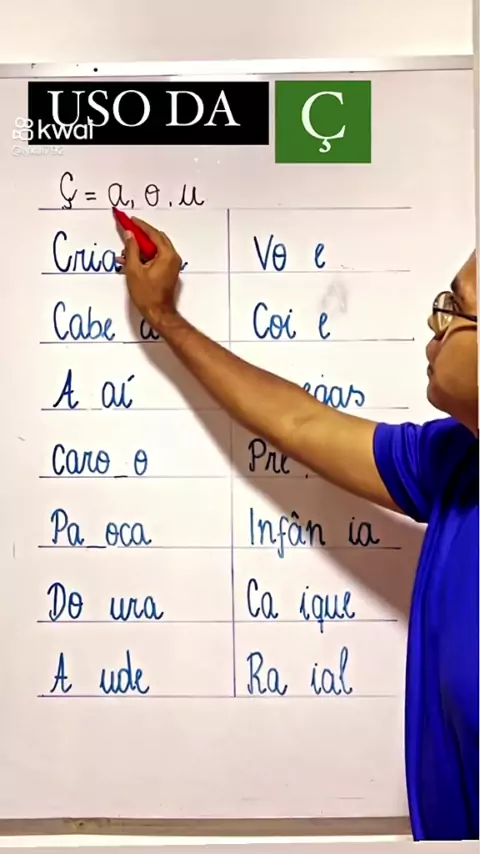 USO DA Ç
kwai
Ç = a, o, u
Cria
Vo e
Cabe a
Coi e
A aí
Caro o
Pre
Pa oca
Infân ia
Do ura
Ca ique
A ude
Ra ial